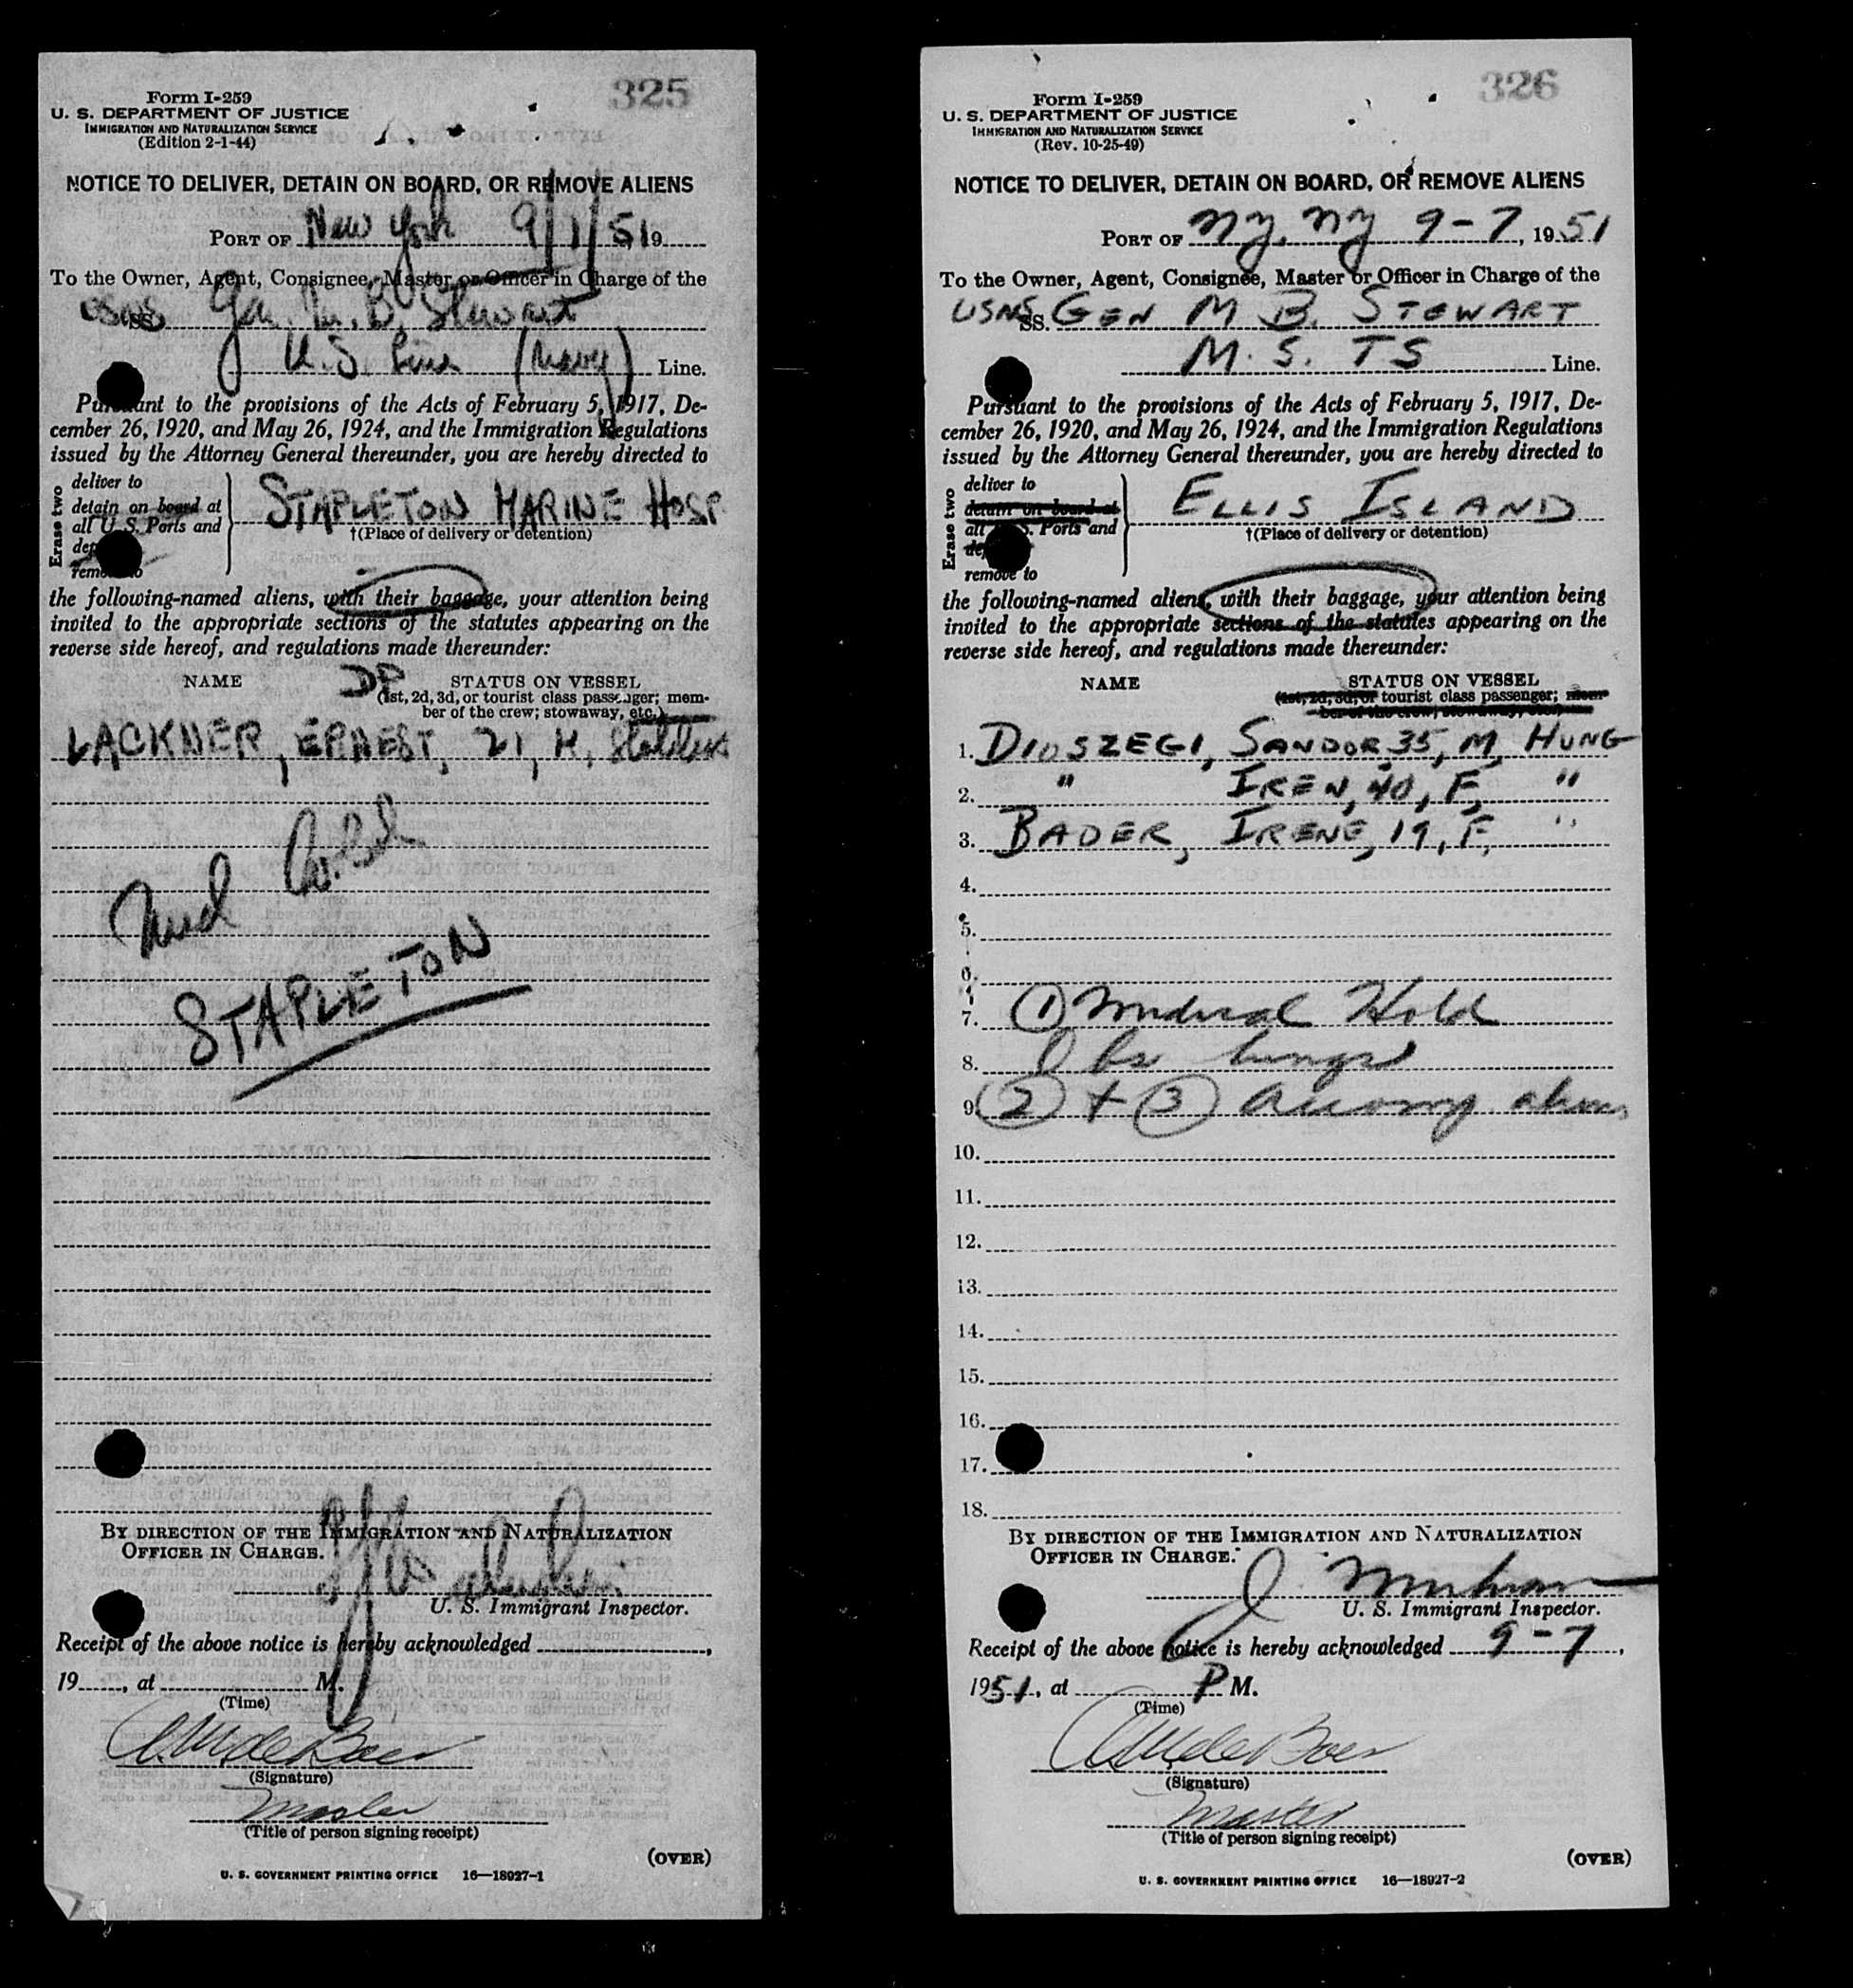 325
Form I-259
U. S. DEPARTMENT OF JUSTICE
IMMIGRATION AND NATURALIZATION SERVICE
(Edition 2-1-44)
NOTICE TO DELIVER, DETAIN ON BOARD, OR REMOVE ALIENS
PORT OF New York 9/1/51 19
To the Owner, Agent, Consignee, Master or Officer in Charge of the
USNS SS. Gen. M. B. Stewart
U.S. Line (Navy) Line.
Pursuant to the provisions of the Acts of February 5, 1917, De-
cember 26, 1920, and May 26, 1924, and the Immigration Regulations
issued by the Attorney General thereunder, you are hereby directed to
Erase two
deliver to
detain on board at
all U. S. Ports and
remove to
STAPLETON MARINE HOSP
†(Place of delivery or detention)
the following-named aliens, with their baggage, your attention being
invited to the appropriate sections of the statutes appearing on the
reverse side hereof, and regulations made thereunder:
NAME DP STATUS ON VESSEL
(1st, 2d, 3d, or tourist class passenger; mem-
ber of the crew; stowaway, etc.)
LACKNER, ERNEST, 21, M, Stateless
Med
STAPLETON
BY DIRECTION OF THE IMMIGRATION AND NATURALIZATION
OFFICER IN CHARGE.
U. S. Immigrant Inspector.
Receipt of the above notice is hereby acknowledged ,
19 , at M.
(Time)
(Signature)
Master
(Title of person signing receipt)
(OVER)
U. S. GOVERNMENT PRINTING OFFICE 16—18927-1
326
Form I-259
U. S. DEPARTMENT OF JUSTICE
IMMIGRATION AND NATURALIZATION SERVICE
(Rev. 10-25-49)
NOTICE TO DELIVER, DETAIN ON BOARD, OR REMOVE ALIENS
PORT OF NY, NY 9-7, 1951
To the Owner, Agent, Consignee, Master or Officer in Charge of the
USNS SS. GEN M B. STEWART
M. S. TS Line.
Pursuant to the provisions of the Acts of February 5, 1917, De-
cember 26, 1920, and May 26, 1924, and the Immigration Regulations
issued by the Attorney General thereunder, you are hereby directed to
Erase two
deliver to
detain on board at
all U. S. Ports and
remove to
ELLIS ISLAND
†(Place of delivery or detention)
the following-named aliens, with their baggage, your attention being
invited to the appropriate sections of the statutes appearing on the
reverse side hereof, and regulations made thereunder:
NAME STATUS ON VESSEL
(1st, 2d, 3d, or tourist class passenger; mem-
ber of the crew; stowaway, etc.)
1. DIOSZEGI, SANDOR 35, M, HUNG
2. " IREN, 40, F, "
3. BADER, IRENE, 19, F, "
4.
5.
6.
7. (1) Medical Hold
8. Obs lungs
9. (2) + (3) Accomp above
10.
11.
12.
13.
14.
15.
16.
17.
18.
BY DIRECTION OF THE IMMIGRATION AND NATURALIZATION
OFFICER IN CHARGE.
U. S. Immigrant Inspector.
Receipt of the above notice is hereby acknowledged 9-7,
1951, at P M.
(Time)
(Signature)
Master
(Title of person signing receipt)
(OVER)
U. S. GOVERNMENT PRINTING OFFICE 16—18927-2